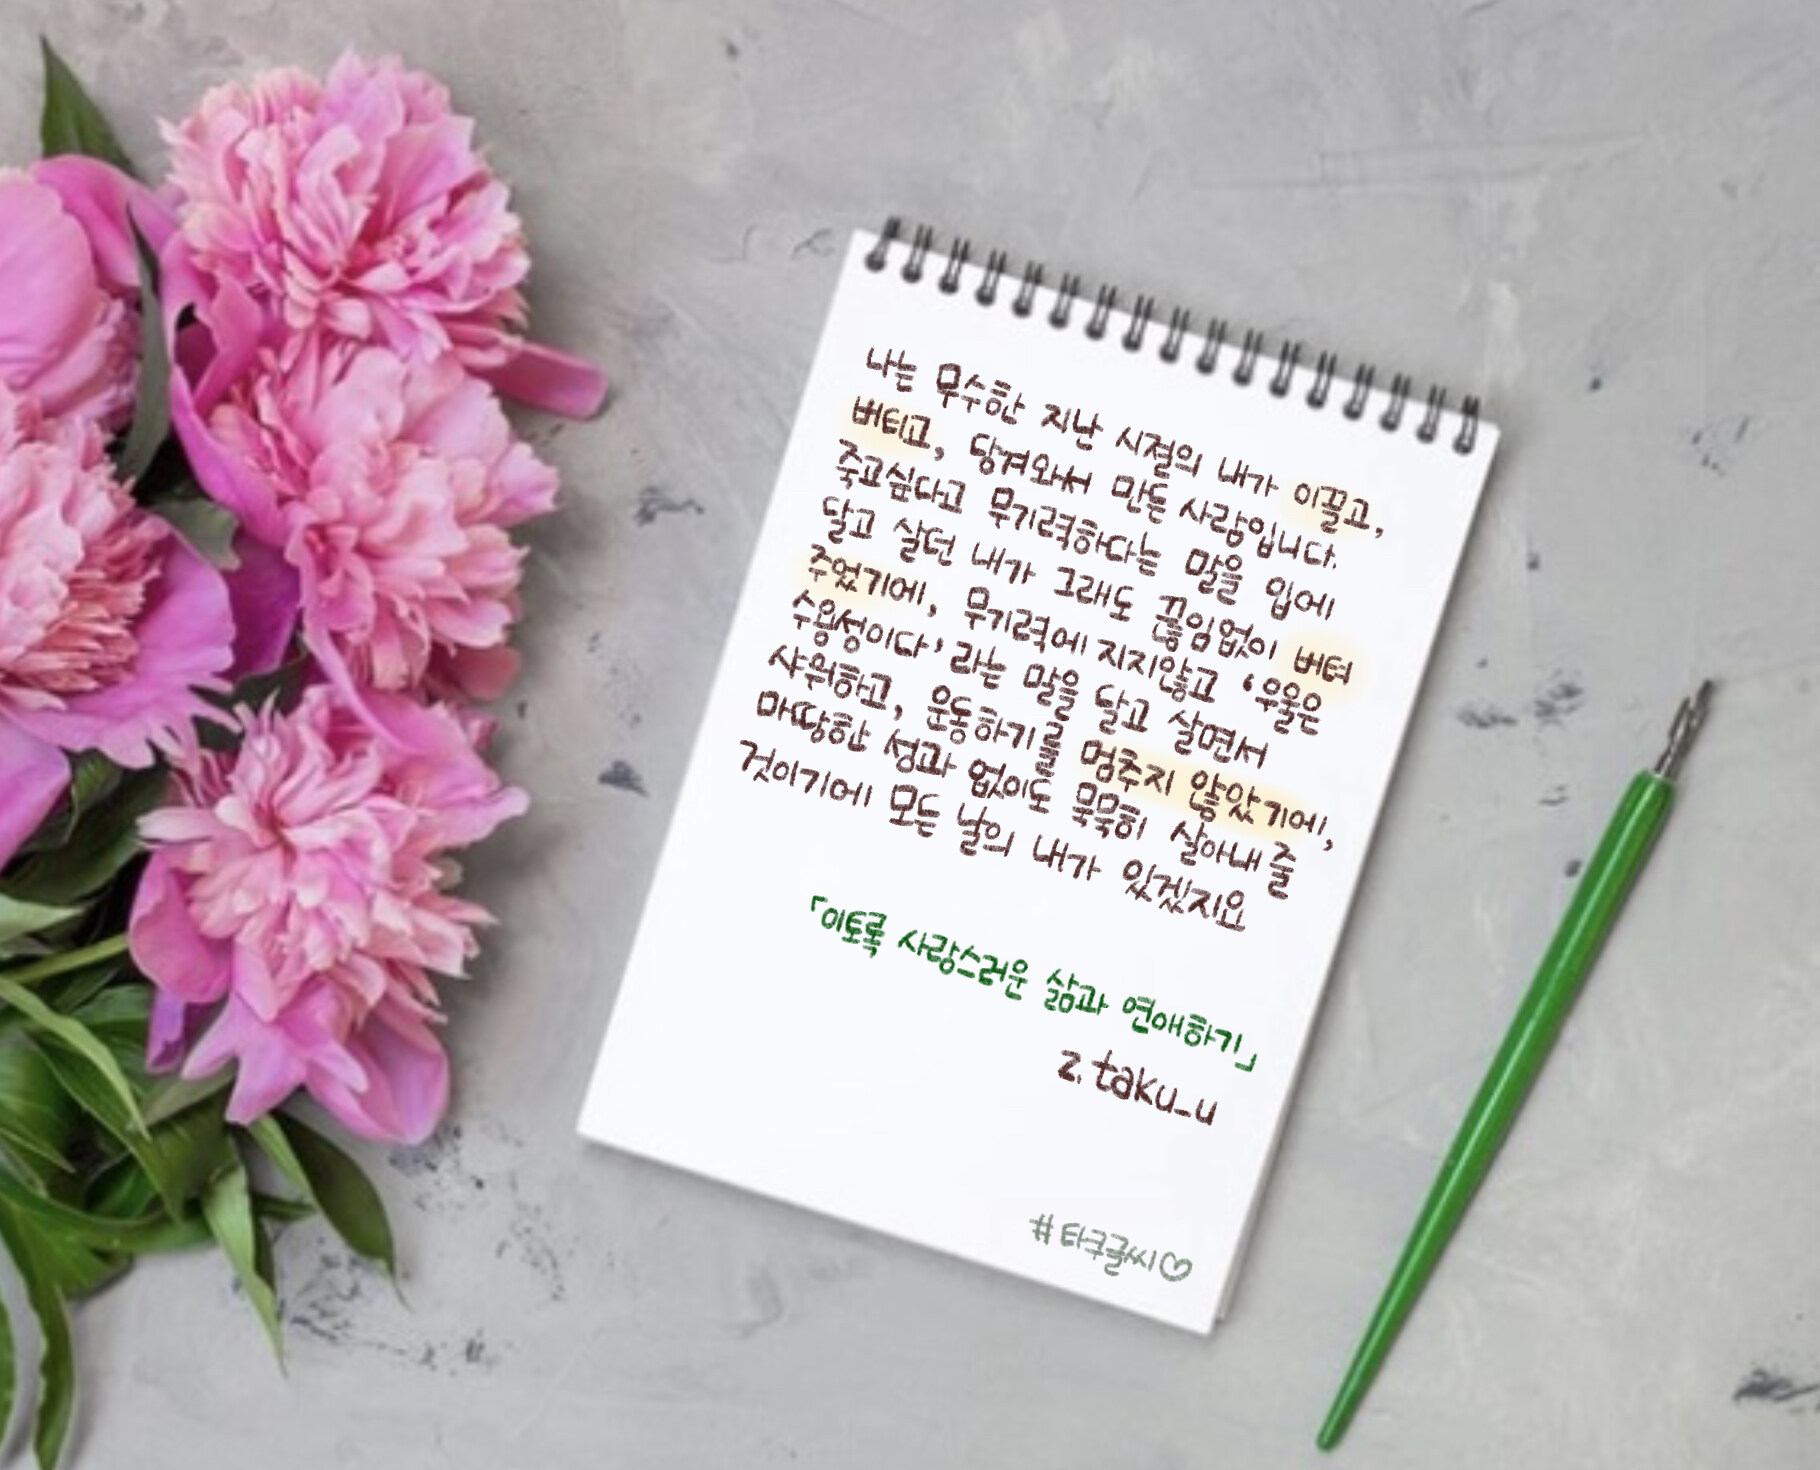 나는 무수한 지난 시절의 내가 이끌고,
버티고, 당겨와서 만든 사람입니다.
죽고싶다고 무기력하다는 말을 입에
달고 살던 내가 그래도 끊임없이 버텨
주었기에, 무기력에 지지않고 '우울은
수용성이다'라는 말을 달고 살면서
샤워하고, 운동하기를 멈추지 않았기에,
마땅한 성과 없이도 묵묵히 살아내줄
것이기에 모든 날의 내가 있겠지요
「이토록 사랑스러운 삶과 연애하기」
z. taku_u
#타쿠글씨♡